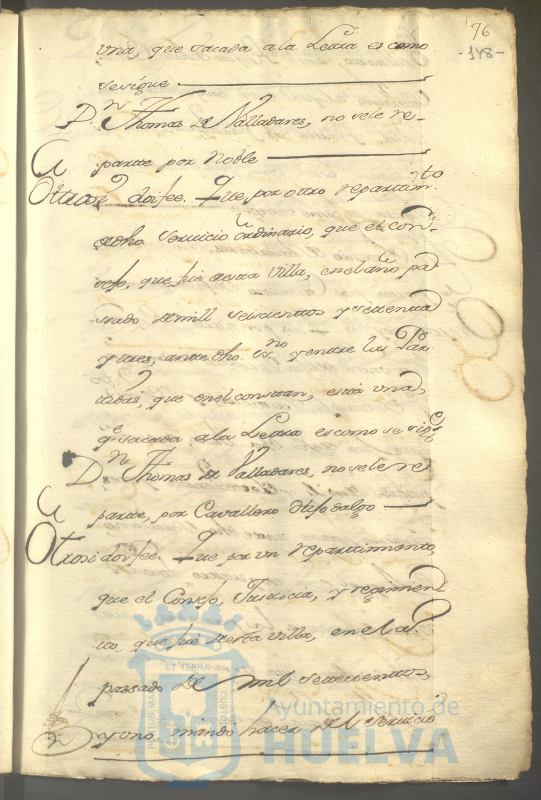 76
-148-
una, que sacada a la Letra es como
se sigue
Dn. Thomas de Valladares, no se le re-
parte por Noble
Otrosi doi fee. Que por otro repartimto
dedho. Servicio ordinario, que el con-
cejo, que fue desta Villa, en el año pa
sado de mill seiscientos y setenta
y tres, ante dho. esno. y entre las Par
tidas, que en el constan, està una
qe sacada a la Letra es como se sigue
Dn. Thomas de Valladares, no se le re
parte, por Cavallero Hijo dalgo
Otrosi doi fee. Que por un repartimiento,
que el Consejo, Justicia, y regimien
to, que fue desta villa, en el a.
passado de mil setecientos,
y uno, mando hacer del servicio
PORTUS MARIS
ET TERRÆ
CUSTODIA
Ayuntamiento de
HUELVA